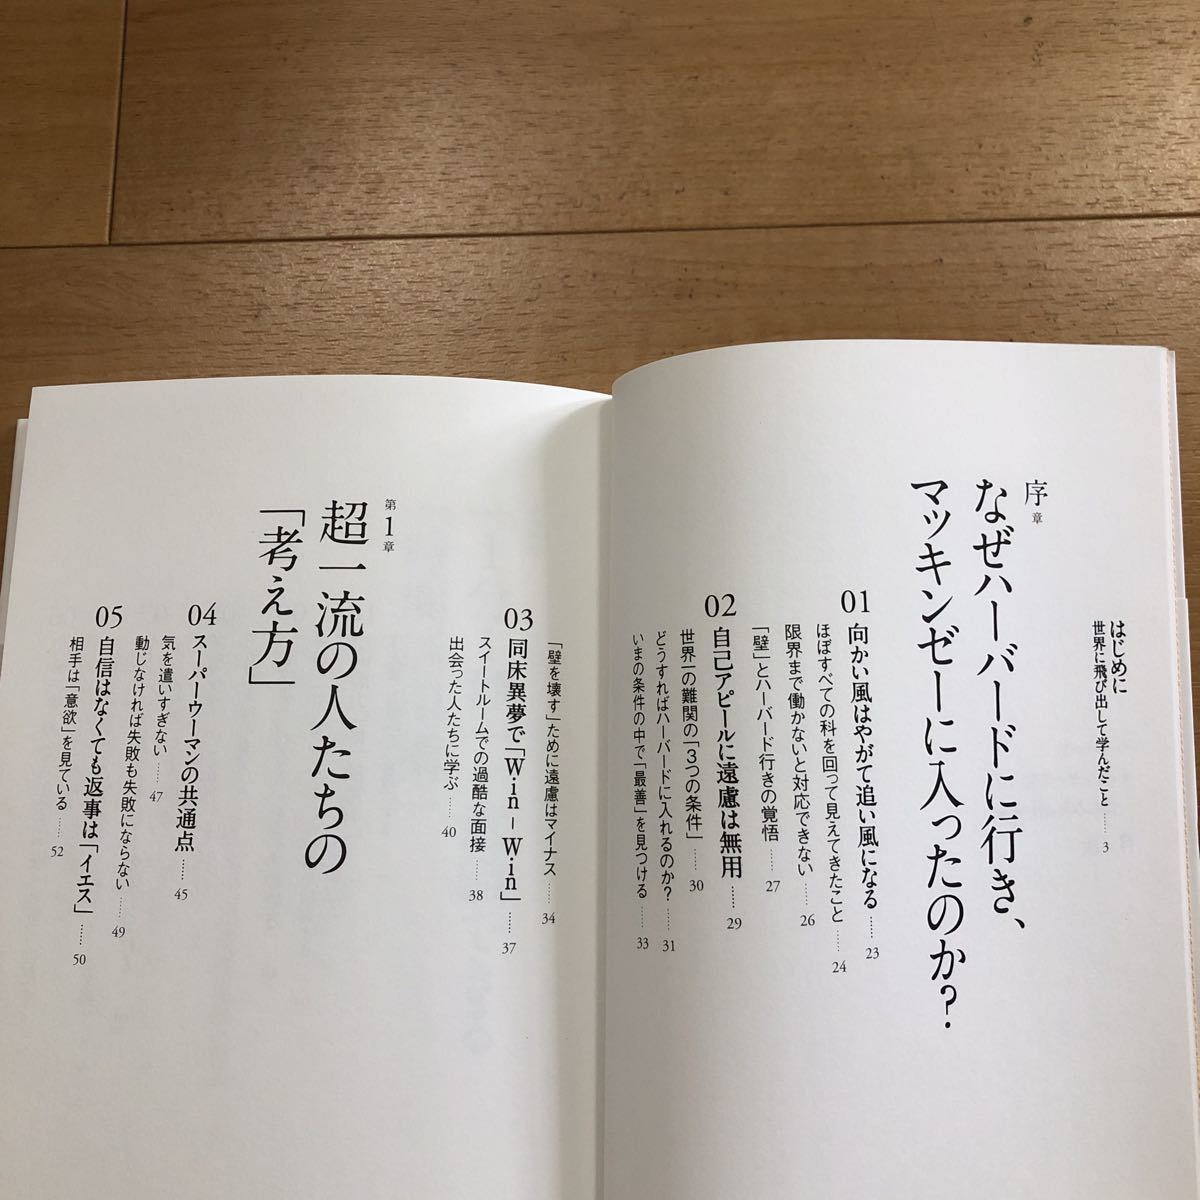 はじめに
世界に飛び出して学んだこと …… 3
序章
なぜハーバードに行き、
マッキンゼーに入ったのか?
01 向かい風はやがて追い風になる …… 23
ほぼすべての科を回って見えてきたこと …… 24
限界まで働かないと対応できない …… 26
「壁」とハーバード行きの覚悟 …… 27
02 自己アピールに遠慮は無用 …… 29
世界一の難関の「3つの条件」 …… 30
どうすればハーバードに入れるのか? …… 31
いまの条件の中で「最善」を見つける …… 33
「壁を壊す」ために遠慮はマイナス …… 34
03 同床異夢で「Win－Win」 …… 37
スイートルームでの過酷な面接 …… 38
出会った人たちに学ぶ …… 40
第1章
超一流の人たちの
「考え方」
04 スーパーウーマンの共通点 …… 45
気を遣いすぎない …… 47
動じなければ失敗も失敗にならない …… 49
05 自信はなくても返事は「イエス」 …… 50
相手は「意欲」を見ている …… 52